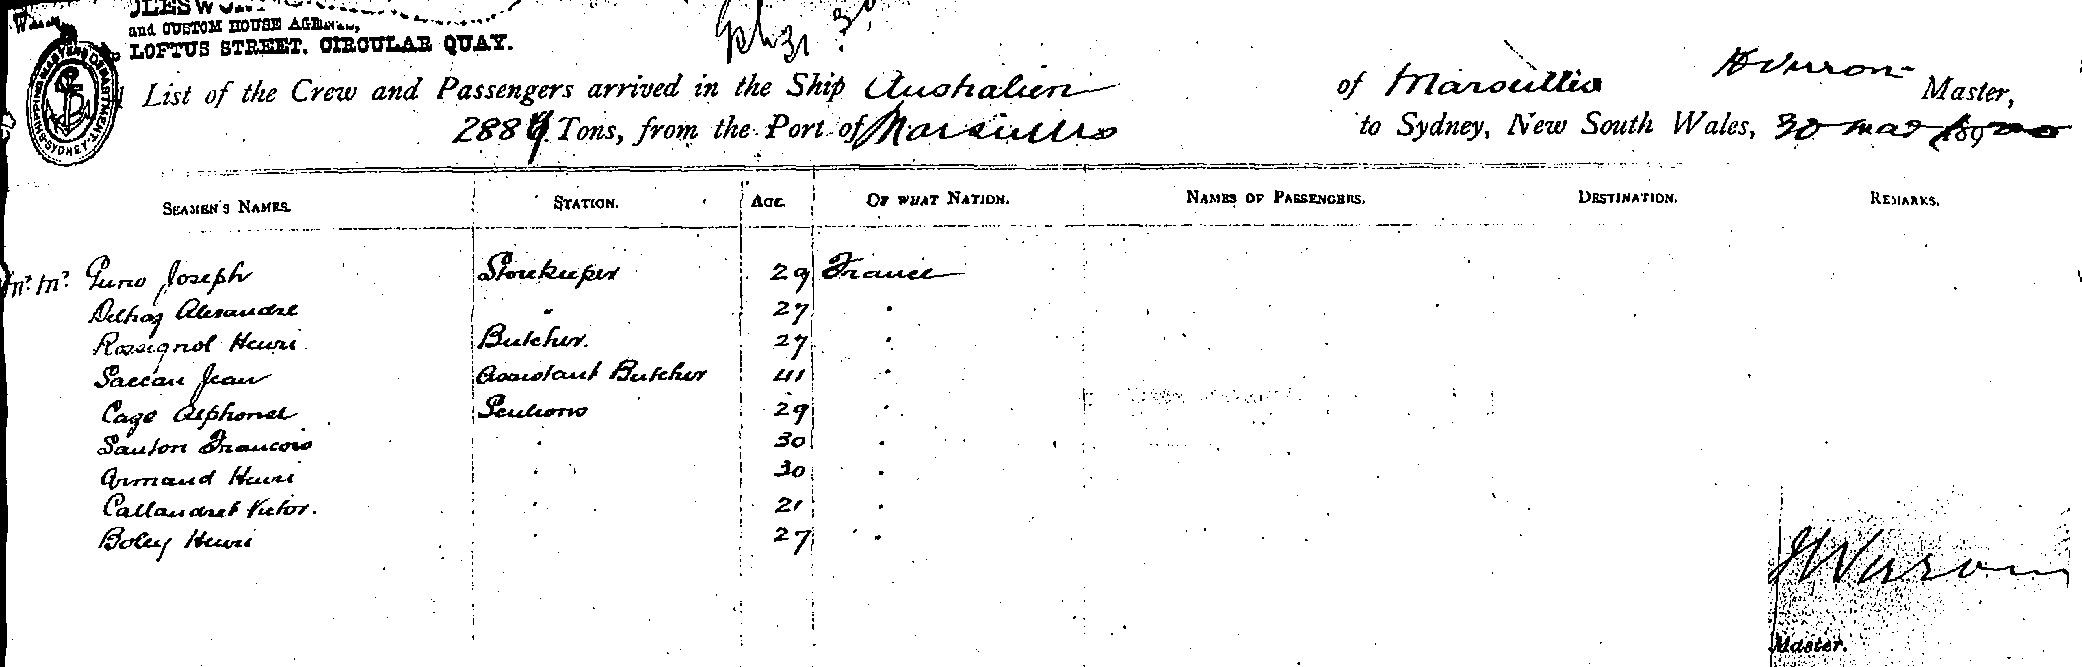 and CUSTOM HOUSE AGENTS,
LOFTUS STREET, CIRCULAR QUAY.
List of the Crew and Passengers arrived in the Ship Australien of Marseilles Master,
2889 Tons, from the Port of Marseilles to Sydney, New South Wales, 30 189
SEAMEN'S NAMES. STATION. AGE. OF WHAT NATION. NAMES OF PASSENGERS. DESTINATION. REMARKS.
Joseph Storekeeper 29 France
Alexandre " 27 "
Rossignol Henri Butcher. 27 "
Jean Assistant Butcher 41 "
Cage Alphonse 29 "
Santon Francois " 30 "
Armand Henri " 30 "
Callandret Victor. " 21 "
Boley Henri " 27 "
Master.